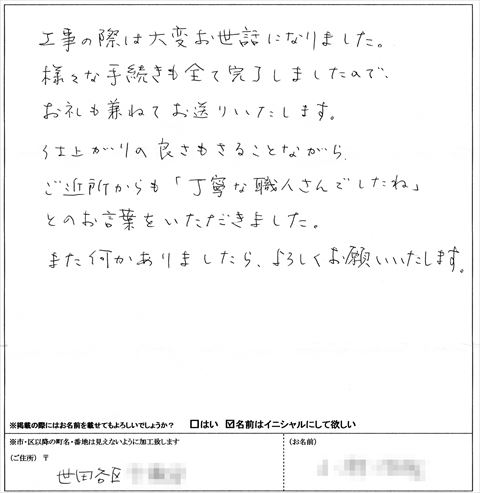 工事の際は大変お世話になりました。
様々な手続きも全て完了しましたので、
お礼も兼ねてお送りいたします。
仕上がりの良さもさることながら、
ご近所からも「丁寧な職人さんでしたね」
とのお言葉をいただきました。
また何かありましたら、よろしくお願いいたします。
※掲載の際にはお名前を載せてもよろしいでしょうか? □はい ☑名前はイニシャルにして欲しい
※市・区以降の町名・番地は見えないように加工致します
(ご住所) 〒
世田谷区
(お名前)